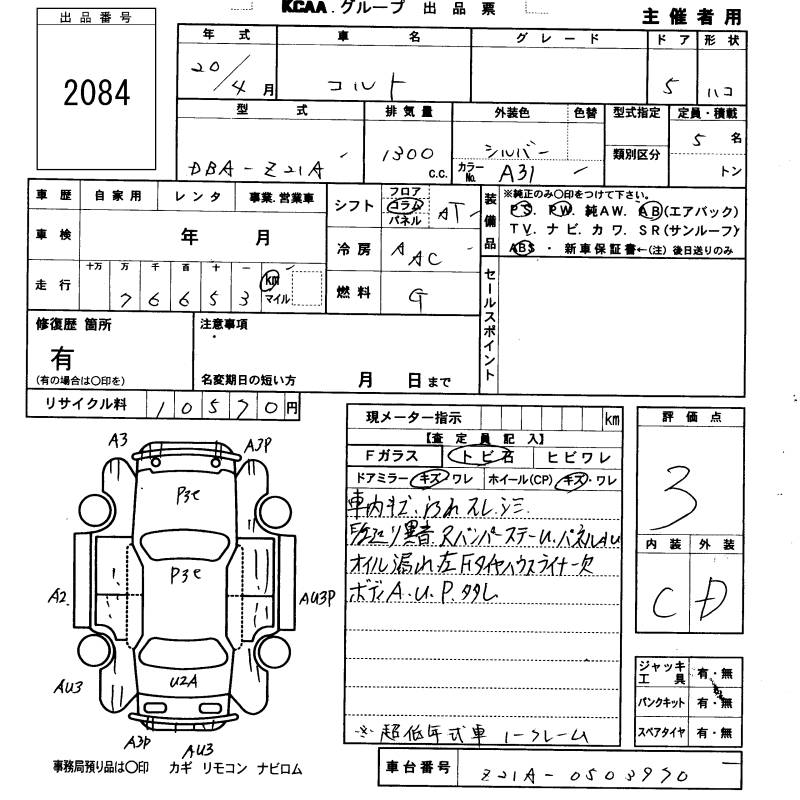 KCAA.グループ 出品票
主催者用
出品番号
2084
年式 車名 グレード ドア 形状
20/4月 コルト 5 ハコ
型式 排気量 外装色 色替 型式指定 定員・積載
DBA-Z21A 1300 c.c. シルバー 5 名
カラーNo. A31 類別区分 トン
車歴 自家用 レンタ 事業.営業車
車検 年 月
走行 十万 万 千 百 十 一 km マイル
7 6 6 5 3
シフト フロア コラム パネル AT
冷房 AAC
燃料 G
装備品 ※純正のみ○印をつけて下さい。
PS. PW. 純AW. AB(エアバック)
TV. ナビ. カワ. SR(サンルーフ)
ABS・新車保証書←(注)後日送りのみ
セールスポイント
修復歴 箇所
有
(有の場合は○印を)
注意事項
名変期日の短い方 月 日まで
リサイクル料 10570円
現メーター指示 km
【査定員記入】
Fガラス トビ石 ヒビワレ
ドアミラー キズ・ワレ ホイール(CP) キズ・ワレ
車内キズ.汚れスレ.シミ.
オイル漏れ左Fタイヤハウスライナー欠
ボディA.U.P.タタレ
※超低年式車 ノークレーム
評価点
3
内装 外装
C D
ジャッキ工具 有・無
パンクキット 有・無
スペアタイヤ 有・無
車台番号 Z21A-0503990
A3
A3P
P3e
P3e
A2
AU3P
U2A
AU3
A3P
AU3
事務局預り品は○印 カギ リモコン ナビロム